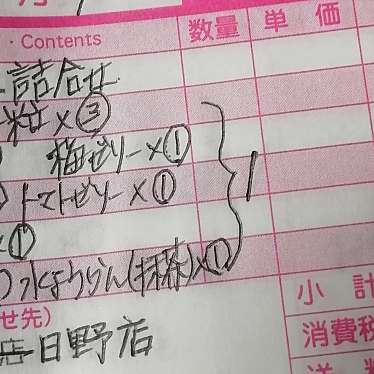 ・Contents 数量 単価
詰合せ
粒×③
梅ゼリー×①
トマトゼリー×①
×①
水ようかん(抹茶)×① 1
小計
せ先)
消費税
店 日野店
送料